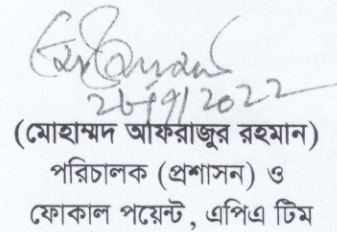 ২৮/৭/2022
(মোহাম্মদ আফরাজুর রহমান)
পরিচালক (প্রশাসন) ও
ফোকাল পয়েন্ট, এপিএ টিম